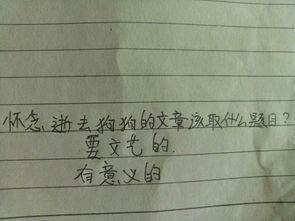 怀念逝去狗狗的文章该取什么题目?
要文艺的.
有意义的